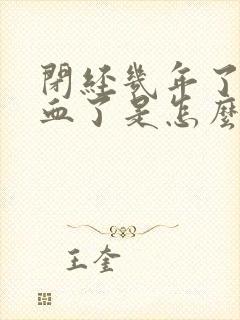 閉經幾年了
血了是怎麼
王奎